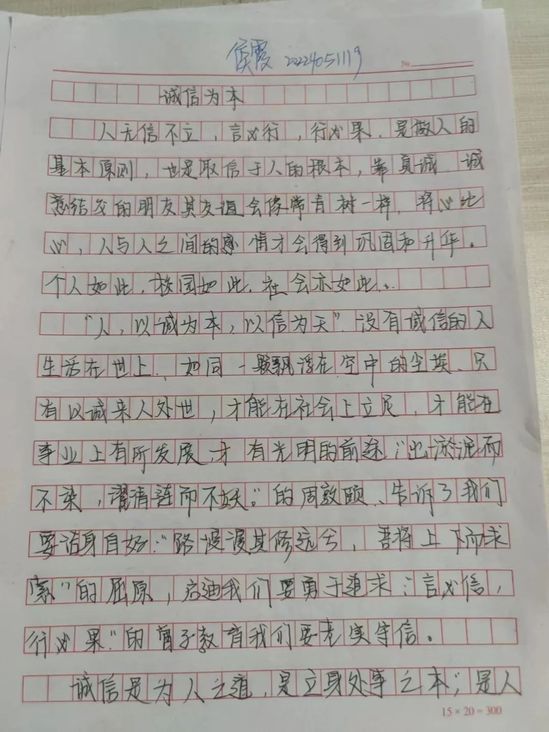 侯霞 20224051119
No
诚信为本
人无信不立，言必行，行必果，是做人的
基本原则，也是取信于人的根本，靠真诚、诚
恳结交的朋友其友谊会像常青树一样，将心比
心，人与人之间的感情才会得到巩固和升华。
个人如此，校园如此，社会亦如此。
“人，以诚为本，以信为天”没有诚信的人
生活在世上，如同一颗飘浮在空中的尘埃，只
有以诚来人处世，才能在社会上立足，才能在
事业上有所发展，才有光明的前途；“出淤泥而
不染，濯清涟而不妖。”的周敦颐，告诉了我们
要洁身自好；“路漫漫其修远兮，吾将上下而求
索”的屈原，启迪我们要勇于追求；“言必信，
行必果”的曾子教育我们要老实守信。
诚信是为人之道，是立身处事之本；是人
15×20=300